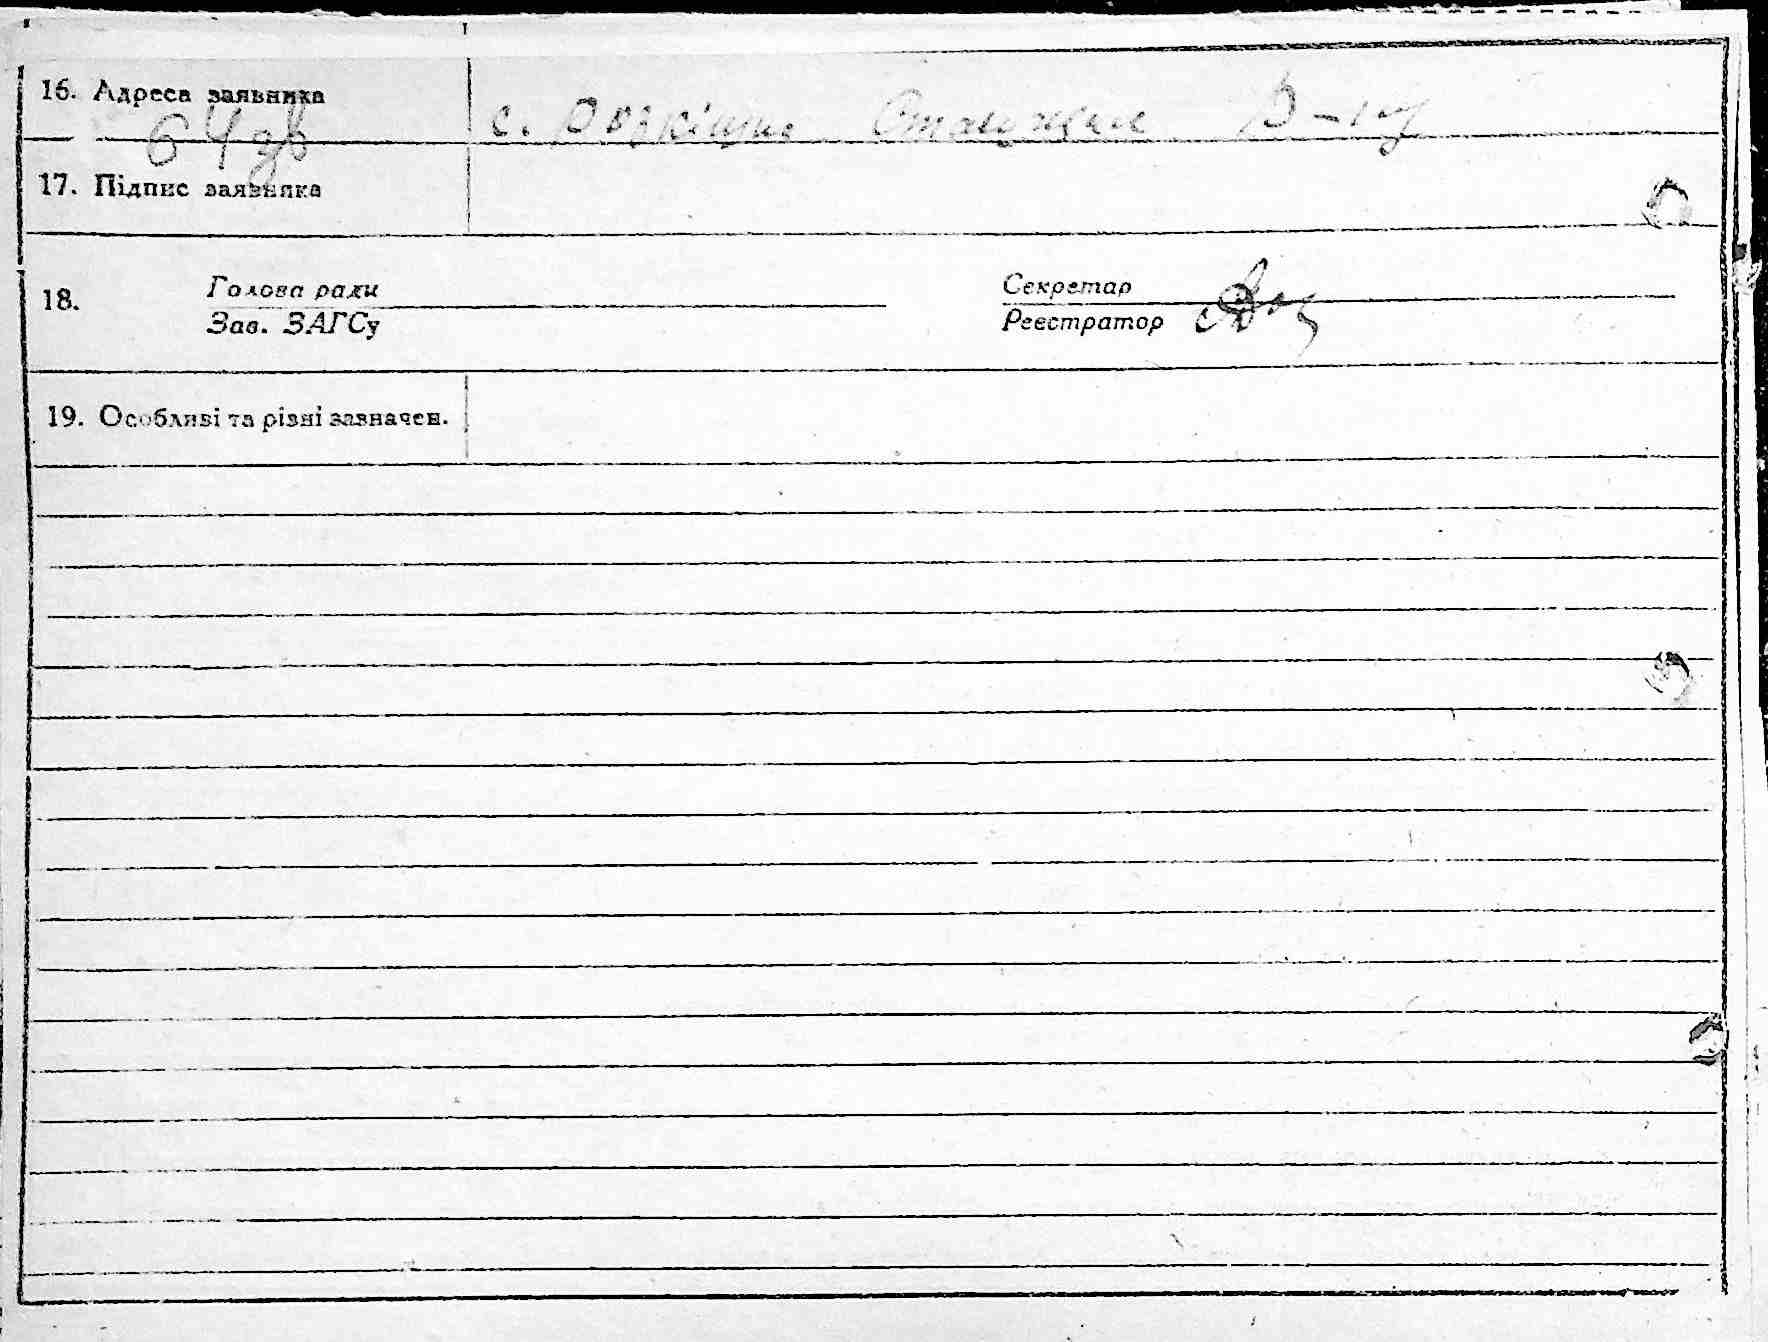 16. Адреса заявника
с.
64 зв
17. Підпис заявника
18. Голова ради Секретар
Зав. ЗАГСу Реєстратор
19. Особливі та різні зазначен.